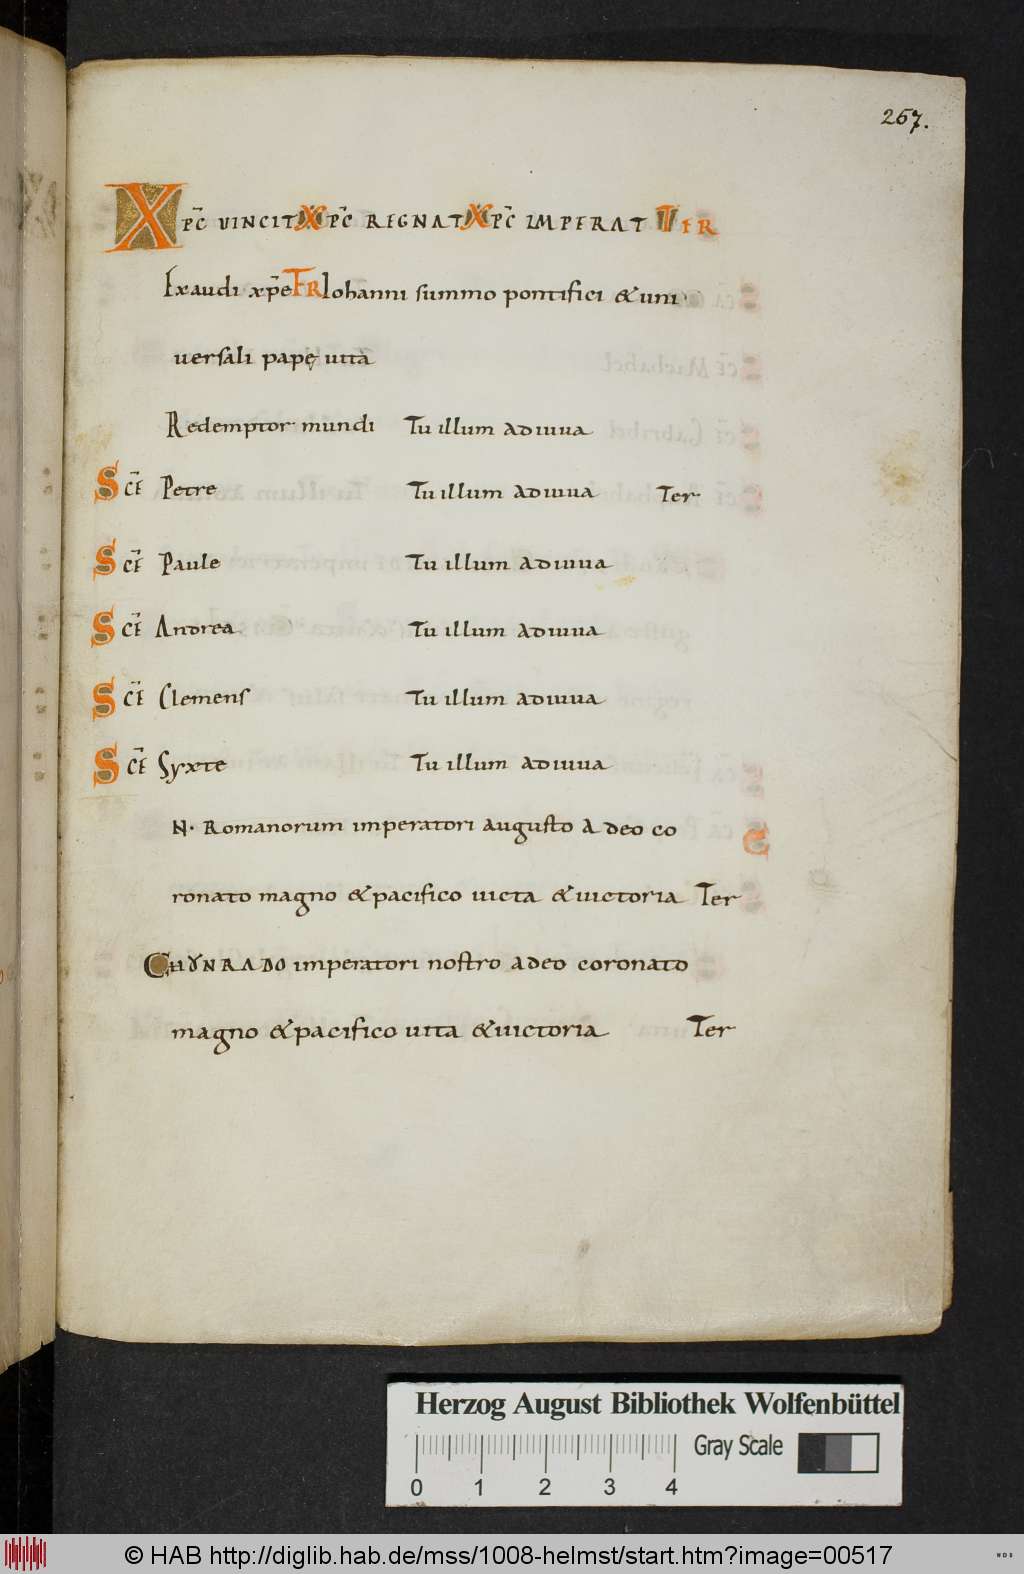 267.
XP̄C VINCIT XP̄C REGNAT XP̄C IMPERAT TER
Exaudi xp̄e TR Iohanni summo pontifici & uni
uersali papę uita
Redemptor mundi Tu illum adiuua
SC̄E Petre Tu illum adiuua Ter
SC̄E Paule Tu illum adiuua
SC̄E Andrea Tu illum adiuua
SC̄E Clemens Tu illum adiuua
SC̄E Syxte Tu illum adiuua
N· Romanorum imperatori augusto a deo co
ronato magno & pacifico uicta & uictoria Ter
CHǾNRADO imperatori nostro adeo coronato
magno & pacifico uita & uictoria Ter
Herzog August Bibliothek Wolfenbüttel
Gray Scale
0 1 2 3 4
© HAB http://diglib.hab.de/mss/1008-helmst/start.htm?image=00517